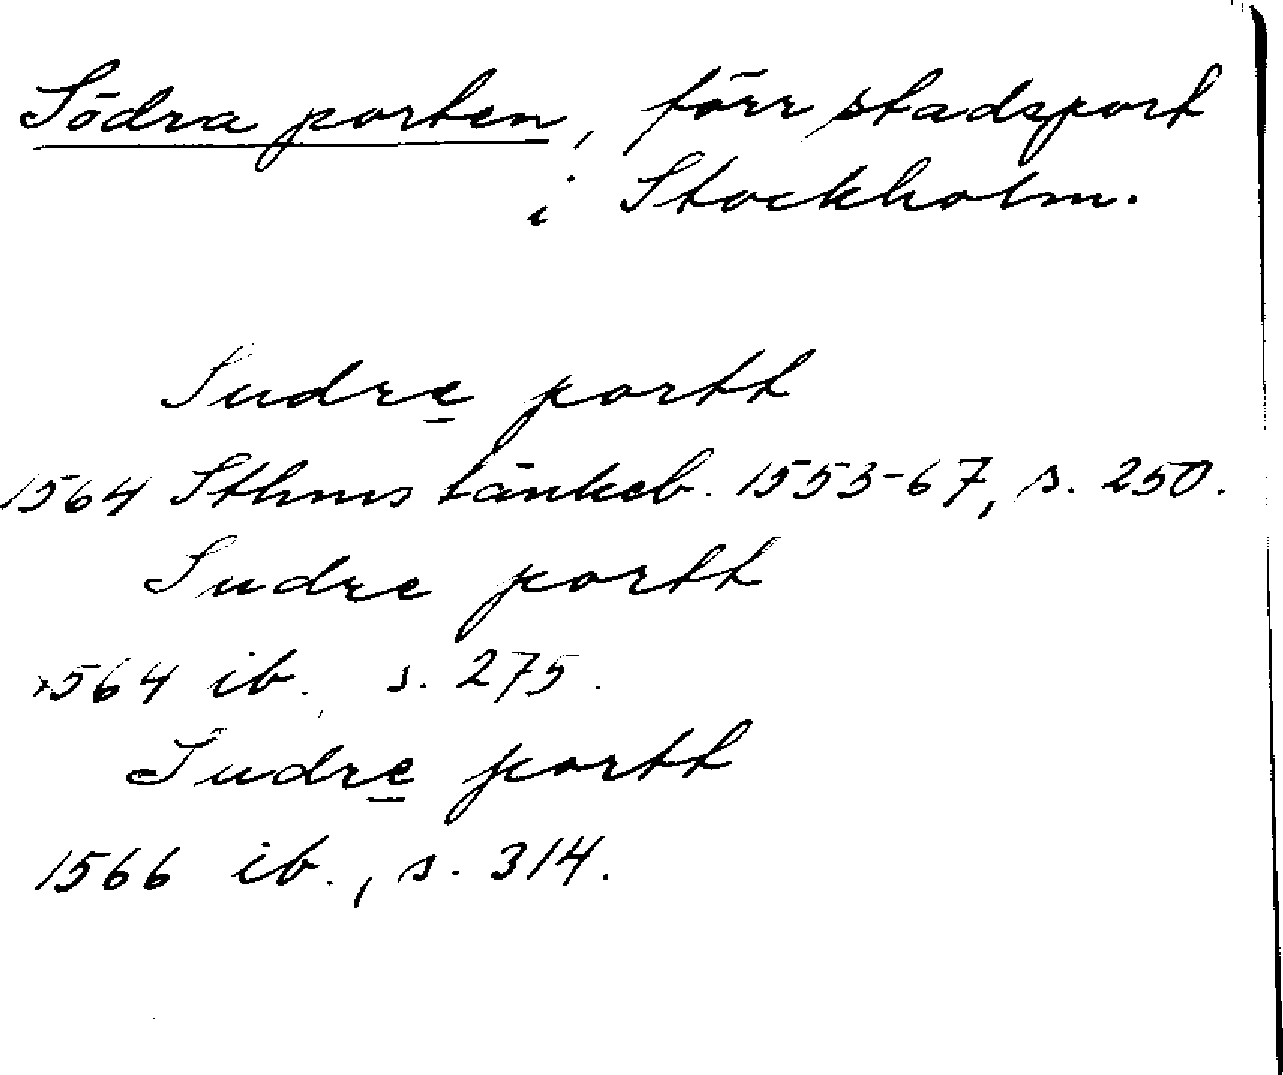 Södra porten, förr stadsport
i Stockholm.
Sudre portt
1564 Sthms tänkeb. 1553-67, s. 250.
Sudre portt
1564 ib. s. 275.
Sudre portt
1566 ib., s. 314.